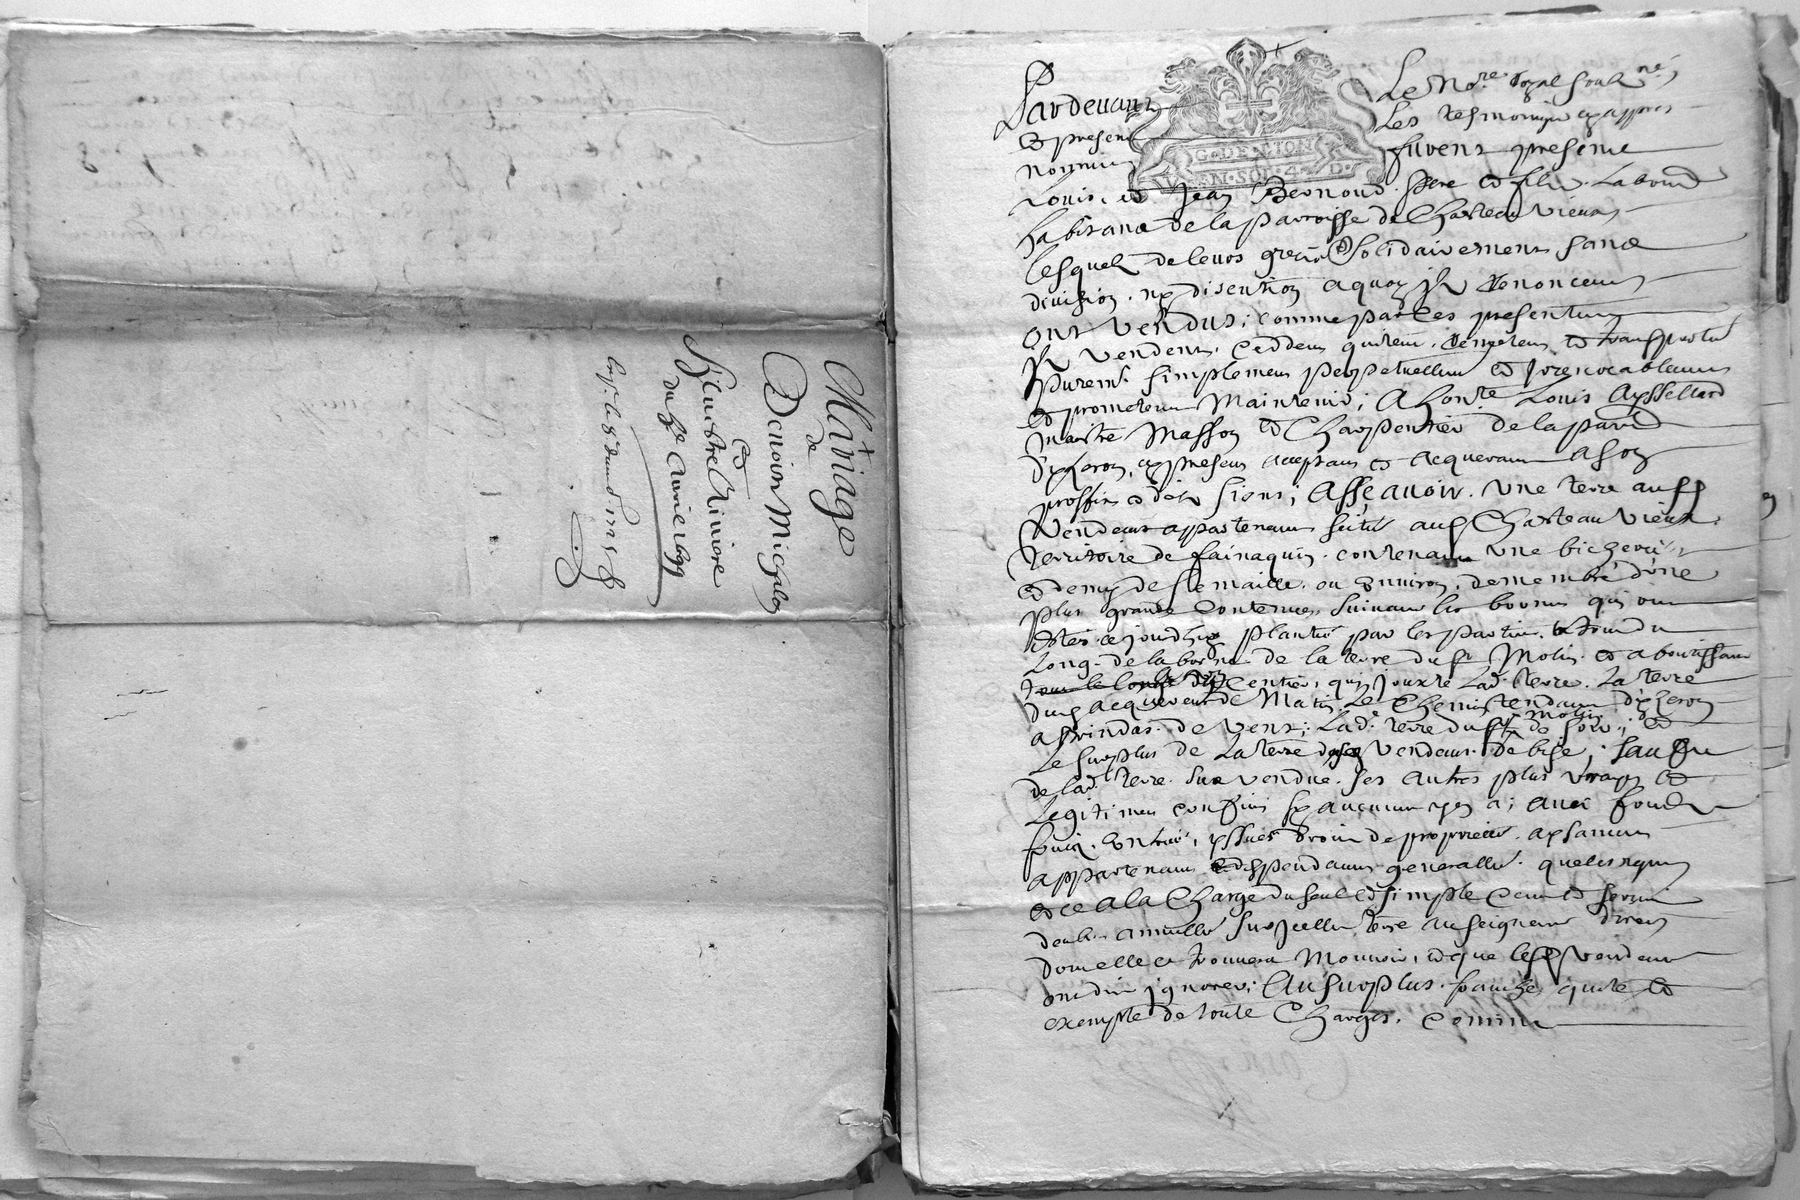 Mariage
de
Benoist Michalo
et
Riviere
du avril 1699
Pardevant Le No.re Royal soubz.né
et presen Les tesmoings appres
nommes furent presens
Louis et Jean Bernoud pere et filz Labour
habitans de la parroisse de Chasteau Vieux
lesquelz de leurs grez et Solidairement sans
division ny discution a quoy ilz renoncent
ont vendus, comme par ces presentes
ilz vendent, ceddent quitent, remettent et transportent
purem.t simplement perpetuellem et Irrevocablement
et prometent Maintenir, A hon.te Louis Aysseliard
maitre Masson et Charpentier de la parr
present acceptant et acquerant a soy
proffit et des siens, Assçavoir Une terre ausd
Vendeurs appartenant scitué aud Chasteau Vieux
territoire de fainaquin contenant une bicheré
et demy de semaille ou environ, demembré d'une
plus grande Contenue, suivant les bornes qui ont
estés ce jourdhuy plantés par les parties
long de la borne de la terre du s.r Molin et aboutissant
centier, qui jouxte Lad.e terre La terre
dud acquereur de Matin Le Chemin tendant
de Vent, Lad.e terre dud s.r Molin de soir, et
Le surplus de La terre desd Vendeurs de bise, sauf
de lad.e terre sus vendue ses autres plus vrays et
Legitimes confins sy aucuns y en a, avec fondz
fruitz, entrée, yssues droit de proprieté aysances
appartenances et despendances generalles quelconques
et ce a la Charge du seul et simple cens et servis
annuelle sur Icelle terre au seigneur direct
dont elle se trouvera Mouvoir, et que lesd vendeurs
ont dit ignorer, Au surplus franche quitte et
exempte de toute Charges, comme